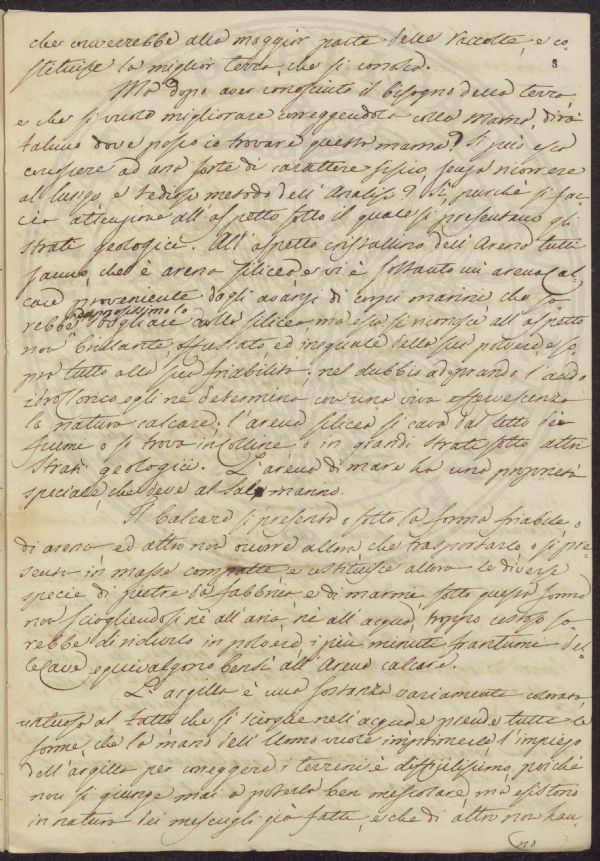 che converrebbe alla maggior parte delle raccolte, e co-
stituisce la miglior terra che si conosca.
3
Ma dopo aver conosciuto il bisogno della terra,
e che si vuole migliorare correggendola colla marna, dirà
taluno dove posso io trovare questa marna? Si può essa
conoscere ad una sorte di carattere fisico, senza ricorrere
al lungo, e tedioso metodo dell'Analisi? Sì, purchè si fac-
cia attenzione all'aspetto sotto il quale si presentano gli
strati geologici. All'aspetto cristallino dell'Arena tutti
sanno, che è arena silicea e vi è soltanto un'arena cal-
care proveniente dagli avanzi di corpi marini che sa-
rebbe dalla silicea, ma essa si riconosce all'aspetto
non brillante offuscato, ed ineguale della sua polvere, e so-
pra tutto alla sua friabilità: nel dubbio adoprando l'acido
idroclorico, egli ne determina con una viva effervescenza
la natura calcare. l'arena silicea si cava dal letto dei
fiumi o si trova in Colline, o in grandi strati sotto altri
strati geologici. L'arena di mare ha una proprietà
speciale, che deve al Sale marino.
Il Calcare si presenta o sotto la forma friabile, o
di arena ed altro non occorre allora, che trasportarlo, o si pre-
senta in masse compatte e costituisce allora le diverse
specie di pietre da fabbrica e di marmi sotto questa forma
non sciogliendosi nè all'aria, nè all'acqua, troppo costoso sa-
rebbe di ridurlo in polvere, i più minuti frantumi del-
le Cave equivalgono bensì all'Arena calcare.
L'argilla è una sostanza variamente colorata,
untuosa al tatto che si scioglie nell'acqua, e prende tutte le
forme, che la mano dell'Uomo vuole imprimerle l'impiego
dell'argilla per correggere i terreni è difficilissimo, poichè
non si giunge mai a poterla ben mescolare, ma esistono
in natura dei mescugli già fatti, e che di altro non han-
no